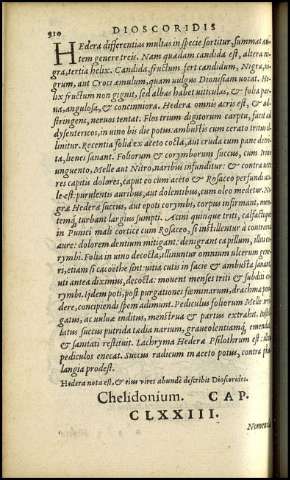 910 DIOSCORIDIS
HEdera differentias multas in specie sortitur, summat au-
tem genere treis. Nam quædam candida est, altera ni-
gra, tertia helix. Candida, fructum fert candidum, Nigra,
rum, aut Croci æmulum, quam uulgus Dionysiam uocat. He-
lix fructum non gignit, sed albas habet uiticulas, & folia
ua, angulosa, & concinniora. Hedera omnis acris est, & ad-
stringens, neruos tentat. Flos trium digitorum captu,
dysentericos, in uino bis die potus. ambustis cum cerato
linitur. Recentia folia ex aceto cocta, aut cruda cum pane
ta, lienes sanant. Foliorum & corymborum succus, cum
unguento, Melle aut Nitro, naribus infunditur: & contra
res capitis dolores, caput eo cum aceto & Rosaceo perfundi
le est. purulentis auribus, aut dolentibus, cum oleo medetur. Ni-
gra Hederæ succus, aut epoti corymbi, corpus infirmant,
temque turbant largius sumpti. Acini quinque triti, calfactique
in Punici mali cortice cum Rosaceo, si instillentur à contraria
aure: dolorem dentium mitigant: denigrant capillum,
rymbi. Folia in uino decocta, illinuntur omnium ulcerum gene-
ri, etiam si cacoëthe sint: uitia cutis in facie & ambusta sanant,
uti antea diximus, decocta: mouent menses triti & subditi co-
rymbi. Ijdem poti, post purgationes fœminarum, drachmæ
dere, concipiendi spem adimunt. Pediculus foliorum Melle
gatus, ac uuluæ inditus, menstrua & partus extrahit.
latus succus putrida tædia narium, graueolentiamque, emendat,
& sanitati restituit. Lachryma Hederæ Psilothrum est:
pediculos enecat. succus radicum in aceto potus, contra
langia prodest.
Hedera nota est, & eius vires abundè describit Dioscorides.
Chelidonium. CAP.
CLXXIII.